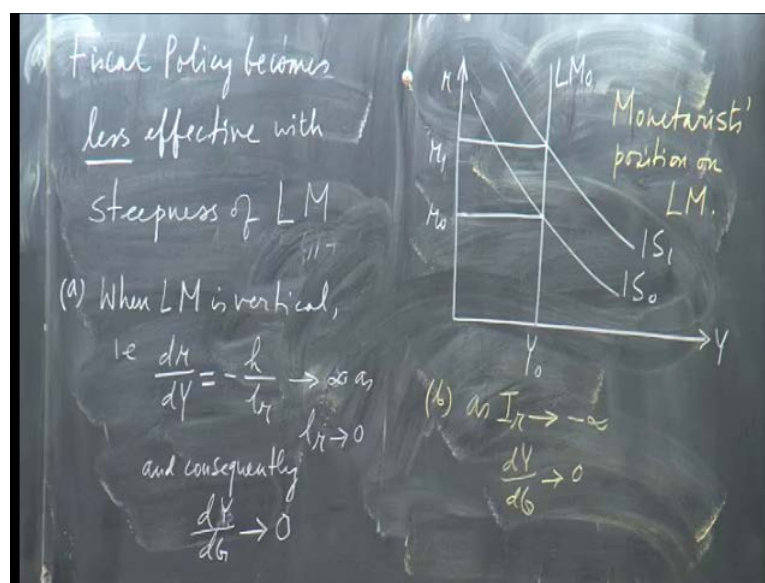 Fiscal Policy becomes
less effective with
steepness of LM
(a) When LM is vertical,
ie dr/dY = - k/lr → ∞ as
lr → 0
and consequently
dY/dG → 0
r
LM0
r1
r0
IS1
IS0
Y0
Y
Monetarists'
position on
LM.
(b) as Ir → -∞
dY/dG → 0